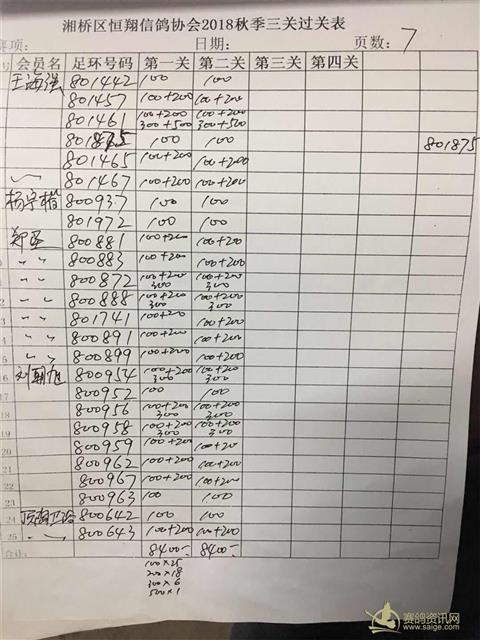 湘桥区恒翔信鸽协会2018秋季三关过关表
赛项: 日期: 页数: 7
号 会员名 足环号码 第一关 第二关 第三关 第四关
王海强 801442 100 100
801457 100+200 100+200
801461 100+200 300+500 100+200 300+500
801875 100 100 801875
801465 100+200 100+200
801467 100+200 100+200
杨宇楷 800937 100 100
801972 100 100
郑 800881 100+200 100+200
〃 〃 800883 100+200 100+200
〃 〃 800872 100+200 300 100+200 300
2 〃 〃 800888 100+200 300 100+200 300
3 〃 〃 801741 100+200 100+200
4 〃 〃 800891 100+200 100+200
5 〃 〃 800899 100+200 100+200
16 刘朝旭 800954 100+200 300 100+200 300
17 800952 100 100
18 800956 100+200 300 100+200 300
19 800958 100+200 300 100+200 300
20 800959 100+200 100+20
21 800962 100+200 100+200
22 800967 100+200 100+200
23 800963 100 100
24 800642 100 100
25 800643 100+200 100+200
合计: 8400- 8400-
100×25
200×18
300×6
500×1
赛鸽资讯网
www.saige.com